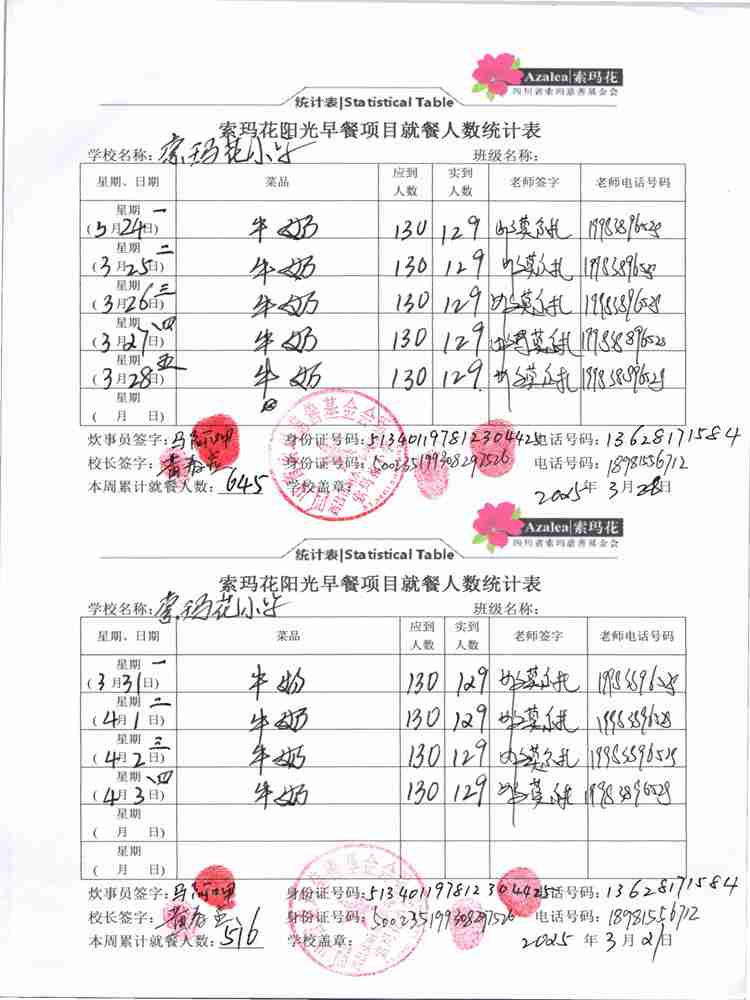 Azalea|索玛花
四川省索玛慈善基金会
统计表|Statistical Table
索玛花阳光早餐项目就餐人数统计表
学校名称：索玛花小学 班级名称：
星期、日期 菜品 应到人数 实到人数 老师签字 老师电话号码
星期一 (3月24日) 牛奶 130 129
星期二 (3月25日) 牛奶 130 129
星期三 (3月26日) 牛奶 130 129
星期四 (3月27日) 牛奶 130 129
星期五 (3月28日) 牛奶 130 129
星期 ( 月 日)
炊事员签字： 身份证号码：513401197812304425 电话号码：13628171584
校长签字： 身份证号码：500235199308297526 电话号码：18981556712
本周累计就餐人数：645 学校盖章： 2025年3月28日
Azalea|索玛花
四川省索玛慈善基金会
统计表|Statistical Table
索玛花阳光早餐项目就餐人数统计表
学校名称：索玛花小学 班级名称：
星期、日期 菜品 应到人数 实到人数 老师签字 老师电话号码
星期一 (3月31日) 牛奶 130 129
星期二 (4月1日) 牛奶 130 129
星期三 (4月2日) 牛奶 130 129
星期四 (4月3日) 牛奶 130 129
星期 ( 月 日)
星期 ( 月 日)
炊事员签字： 身份证号码：513401197812304425 电话号码：13628171584
校长签字： 身份证号码：500235199308297526 电话号码：18981556712
本周累计就餐人数：516 学校盖章： 2025年3月21日